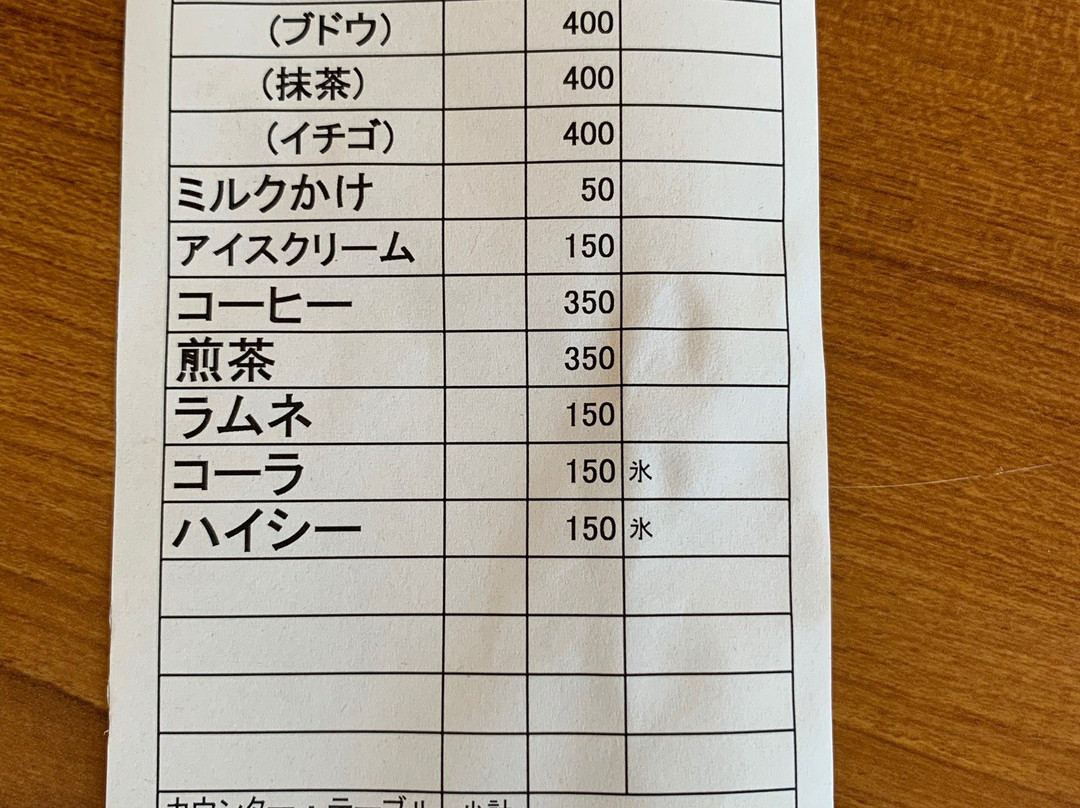 (ブドウ) 400
(抹茶) 400
(イチゴ) 400
ミルクかけ 50
アイスクリーム 150
コーヒー 350
煎茶 350
ラムネ 150
コーラ 150 氷
ハイシー 150 氷
カウンター・テーブル 小計